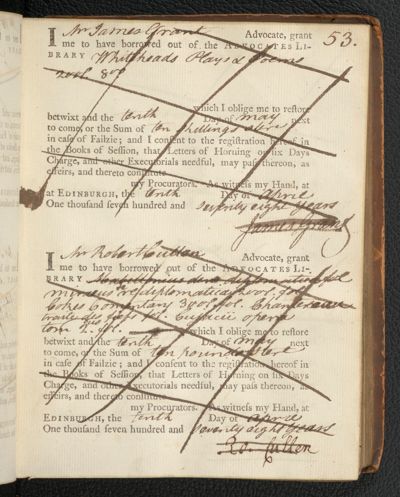 53.
I Mr James Grant Advocate, grant
me to have borrowed out of the ADVOCATES LI-
BRARY Whiteheads Plays & Poems
8vo
which I oblige me to restore
betwixt and the tenth Day of may next
to come, or the Sum of ten shillings
in case of Failzie; and I consent to the registration hereof in
the Books of Session, that Letters of Horning on six Days
Charge, and other Executorials needful, may pass thereon, as
effeirs, and thereto constitute
my Procurators. As witness my Hand, at
at EDINBURGH, the tenth Day of aprile
One thousand seven hundred and Seventy eight years
James Grant
I Mr Robert Cullen Advocate, grant
me to have borrowed out of the ADVOCATES LI-
BRARY
fol.
opera
tom fol. which I oblige me to restore
betwixt and the tenth Day of may next
to come, or the Sum of ten pounds
in case of Failzie; and I consent to the registration hereof in
the Books of Session, that Letters of Horning on six Days
Charge, and other Executorials needful, may pass thereon, as
effeirs, and thereto constitute
my Procurators. As witness my Hand, at
EDINBURGH, the tenth Day of aprile
One thousand seven hundred and Seventy eight years
Ro. Cullen